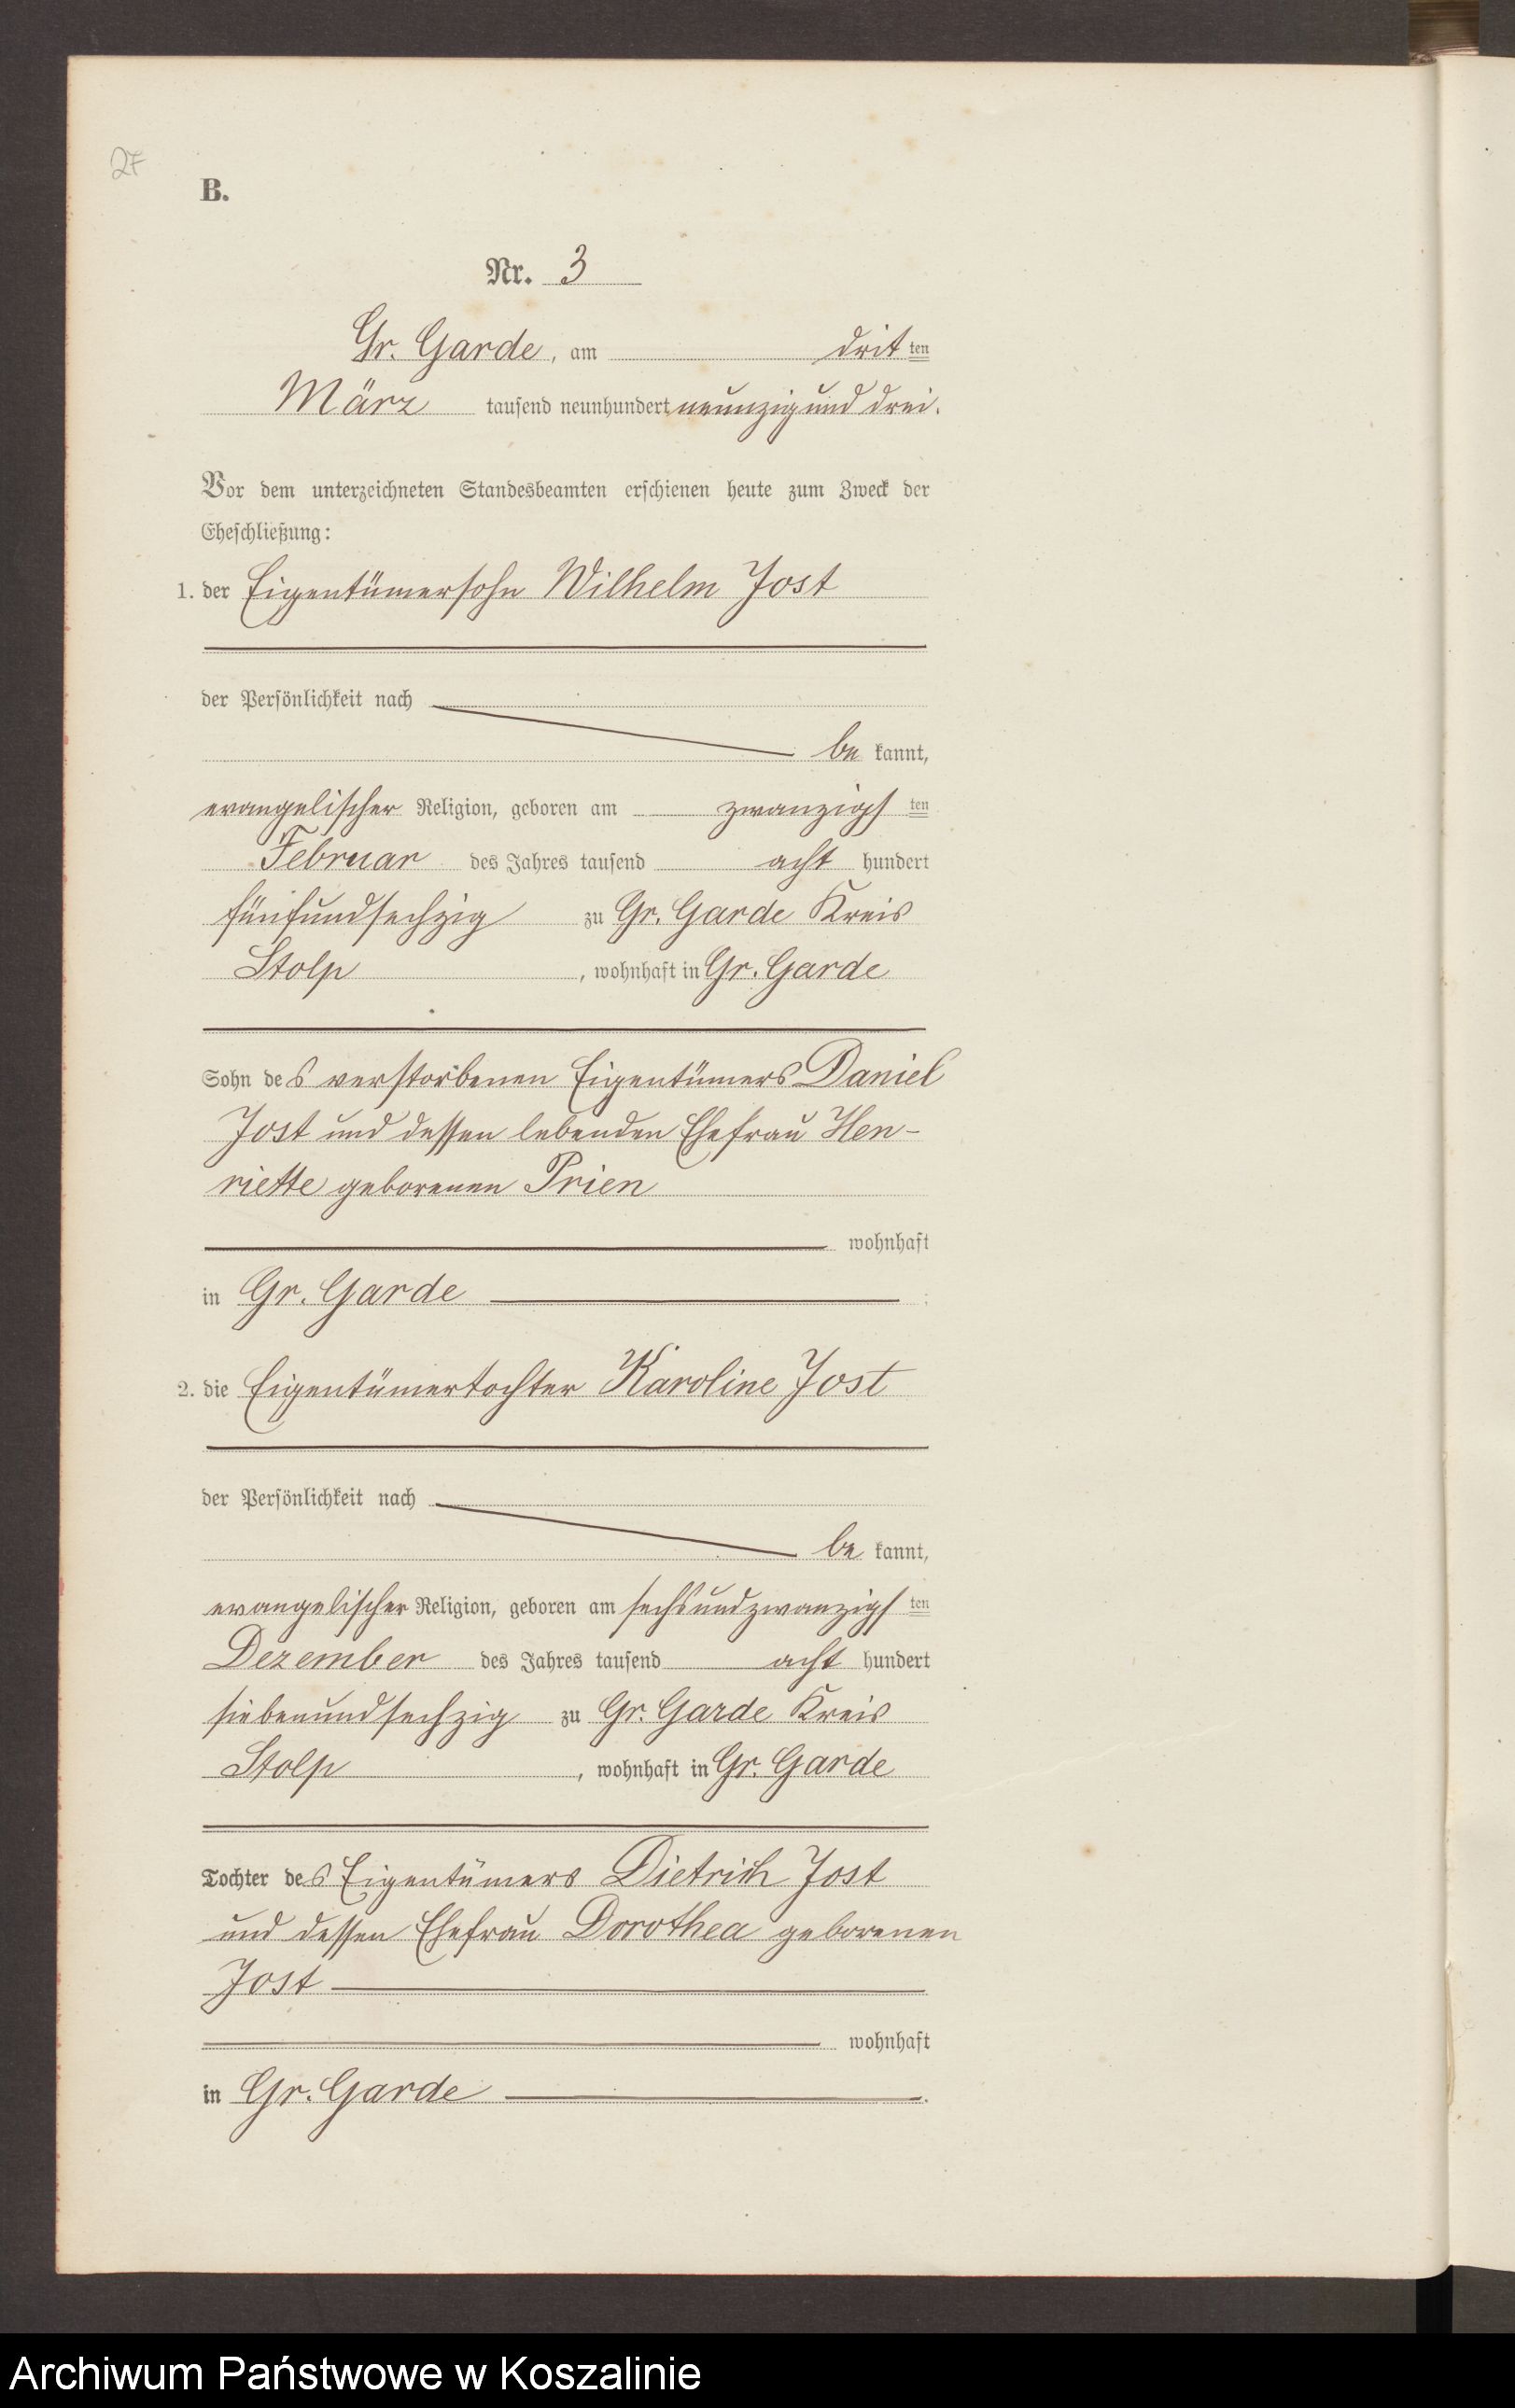 27
B.
Nr. 3
Gr. Garde, am dritten
März tausend neunhundert neunzig und drei.
Vor dem unterzeichneten Standesbeamten erschienen heute zum Zweck der
Eheschließung:
1. der Eigentümersohn Wilhelm Jost
der Persönlichkeit nach
be kannt,
evangelischer Religion, geboren am zwanzigsten
Februar des Jahres tausend acht hundert
fünfundsechzig zu Gr. Garde Kreis
Stolp, wohnhaft in Gr. Garde
Sohn des verstorbenen Eigentümers Daniel
Jost und dessen lebenden Ehefrau Hen-
riette geborenen Prien
wohnhaft
in Gr. Garde ;
2. die Eigentümertochter Karoline Jost
der Persönlichkeit nach
be kannt,
evangelischer Religion, geboren am sechsundzwanzigsten
Dezember des Jahres tausend acht hundert
siebenundsechzig zu Gr. Garde Kreis
Stolp, wohnhaft in Gr. Garde
Tochter des Eigentümers Dietrich Jost
und dessen Ehefrau Dorothea geborenen
Jost
wohnhaft
in Gr. Garde.
Archiwum Państwowe w Koszalinie